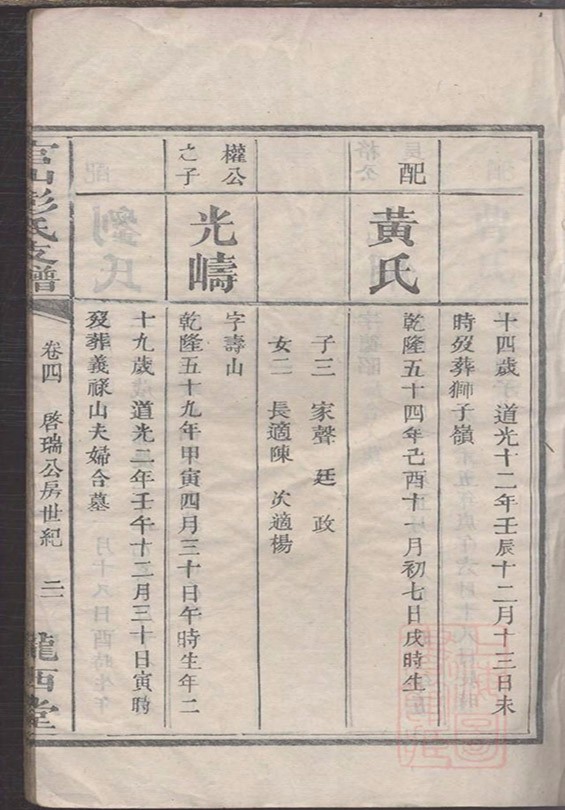 十四歲 道光十二年壬辰十二月十三日未
時歿葬獅子嶺
配
黃氏
乾隆五十四年己酉十一月初七日戌時生
子三 家聲 廷 政
女二 長適陳 次適楊
權公
之子
光嶹
字壽山
乾隆五十九年甲寅四月三十日午時生年二
十九歲 道光二年壬午十二月三十日寅時
歿葬義祿山夫婦合墓
彭氏支譜
卷四 啓瑞公房世紀 二
隴西堂